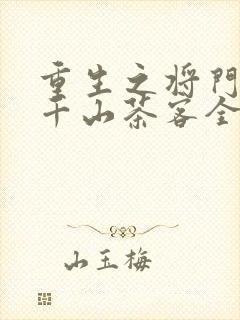 重生之将門
千山茶客全
山玉梅